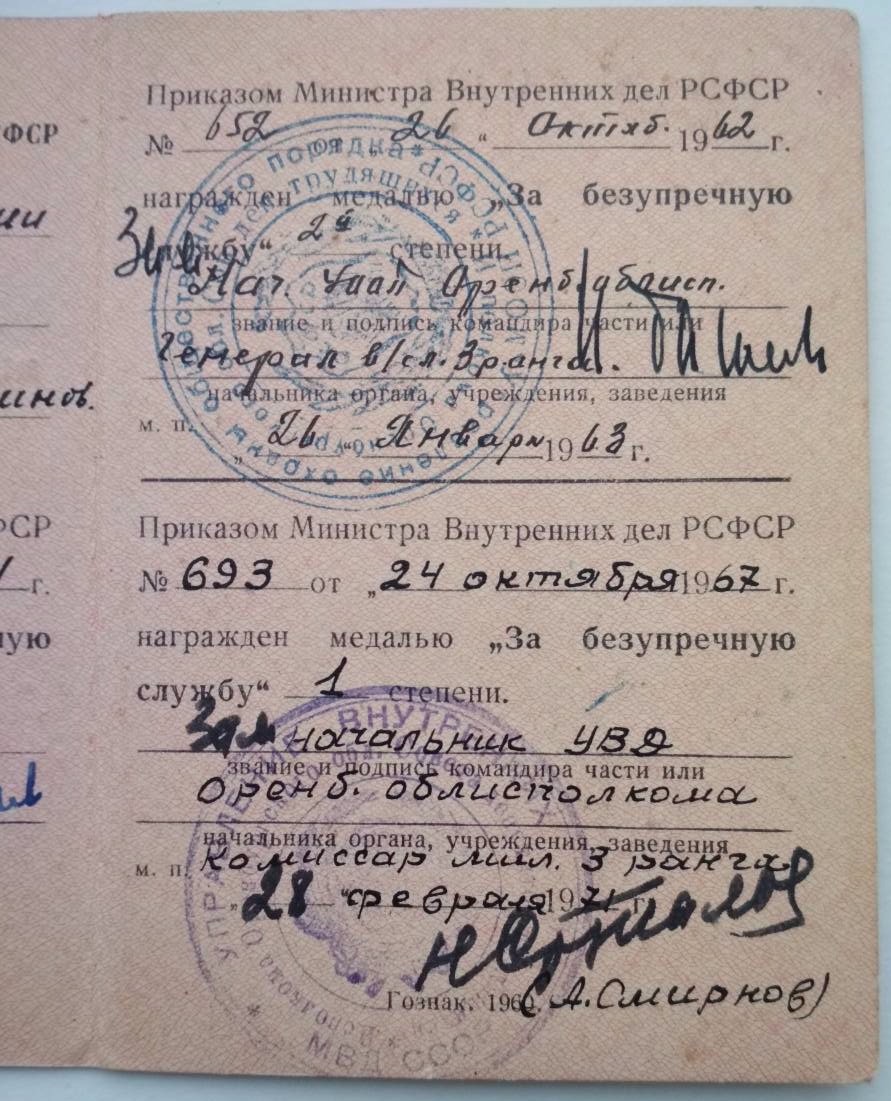 ФСР
ии
инов.
ФСР
г.
ную
Приказом Министра Внутренних дел РСФСР
№ 652 от „26" Октяб. 1962 г.
награжден медалью „За безупречную
службу" 2й степени.
Зам
Нач. Уооп Оренб. облисп.
звание и подпись командира части или
Генерал в/сл. 3 ранга.
начальника органа, учреждения, заведения
м. п. „26" Января 1963 г.
Приказом Министра Внутренних дел РСФСР
№ 693 от „24 октября 1967 г.
награжден медалью „За безупречную
службу" 1 степени.
Зам начальник УВД
звание и подпись командира части или
Оренб. облисполкома
начальника органа, учреждения, заведения
м. п. Комиссар мил. 3 ранга
„28" февраля 1971 г.
Гознак. 1960. (А. Смирнов)
общественного порядка * РСФСР
Управление охраны
трудящихся
УПРАВЛЕНИЕ ВНУТРЕННИХ
* МВД СССР